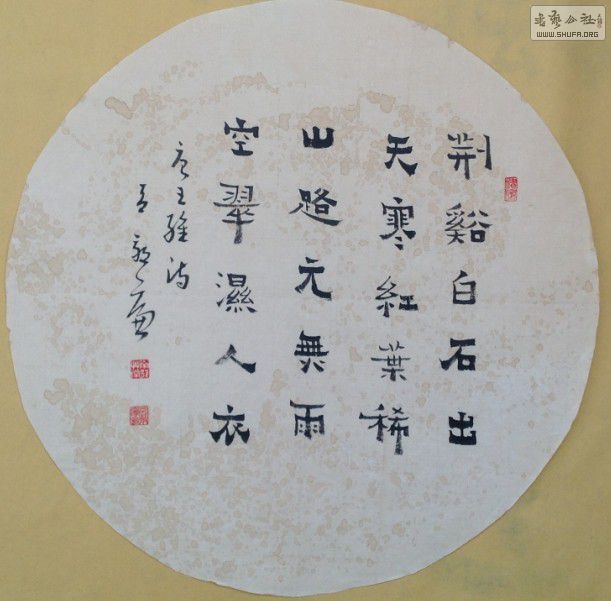 荆谿白石出
天寒紅葉稀
山路元無雨
空翠濕人衣
唐王維诗
書藝公社
WWW.SHUFA.ORG